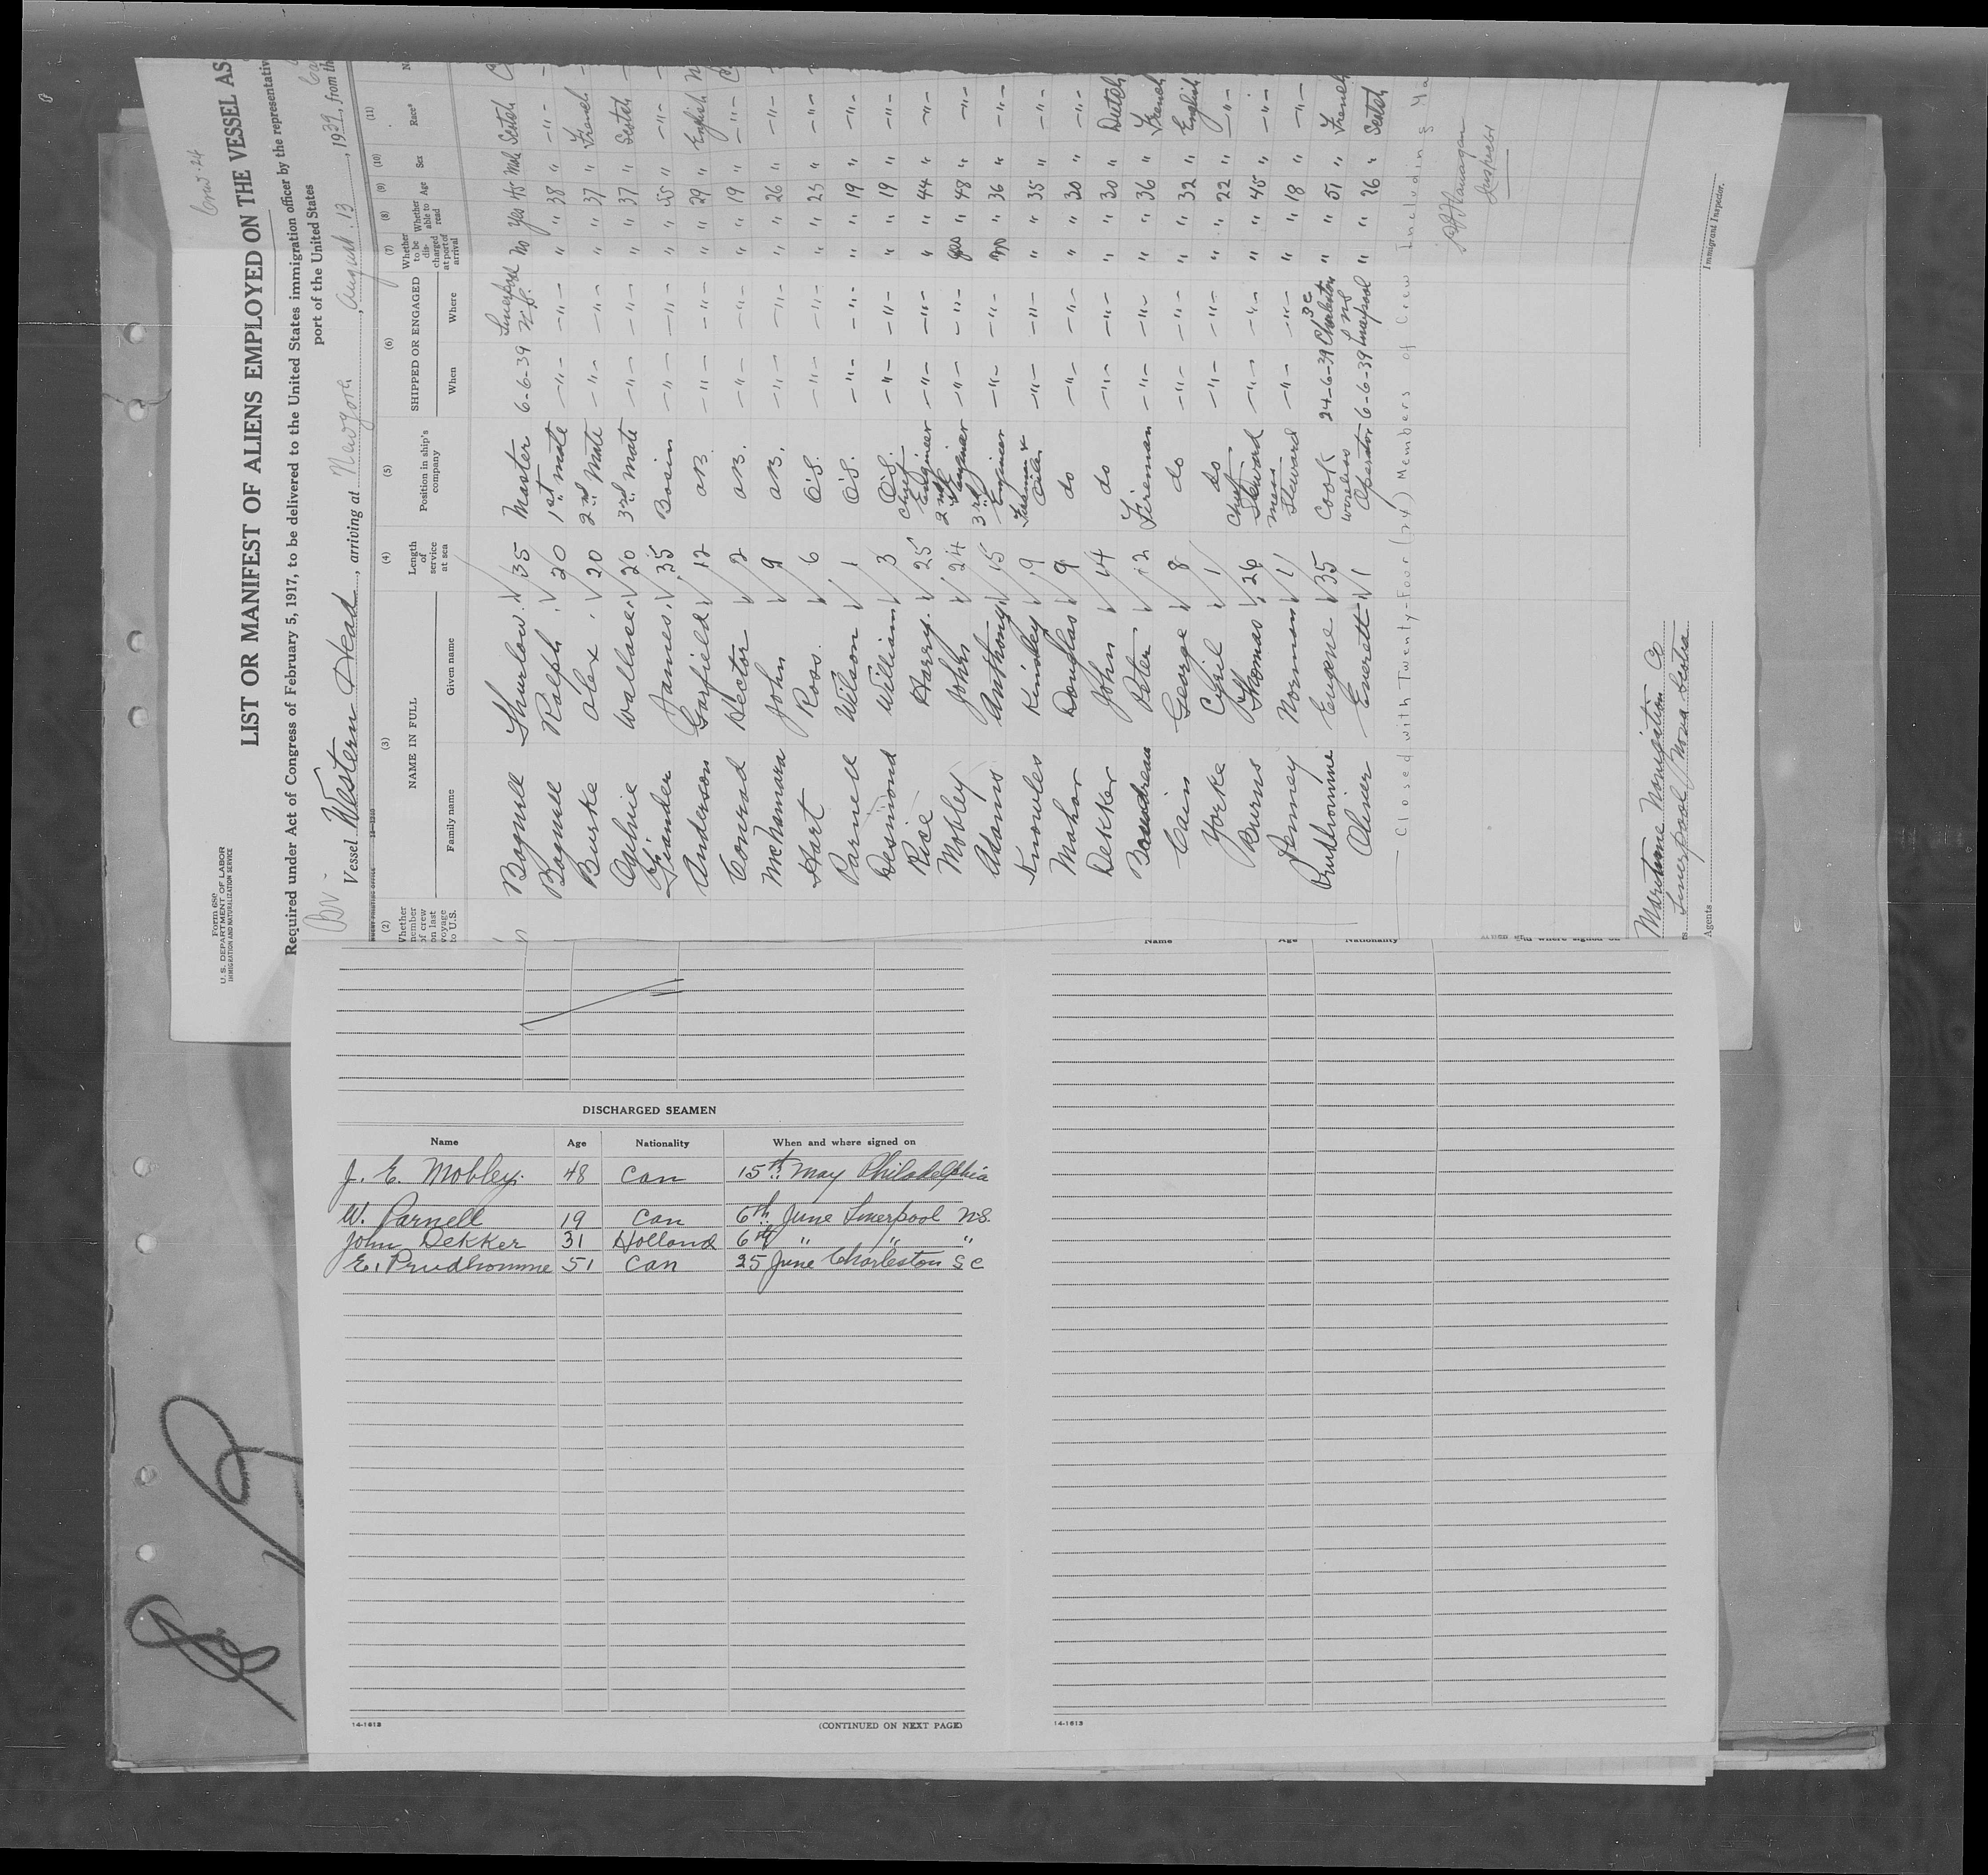 Crew-24
Form 680
U. S. DEPARTMENT OF LABOR
IMMIGRATION AND NATURALIZATION SERVICE
LIST OR MANIFEST OF ALIENS EMPLOYED ON THE VESSEL AS
Required under Act of Congress of February 5, 1917, to be delivered to the United States immigration officer by the representativ
port of the United States
Br. Vessel Western Head, arriving at New York, August 13, 1939, from th
(2) (3) (4) (5) (6) (7) (8) (9) (10) (11)
Whether member of crew on last voyage to U.S. NAME IN FULL Length of service at sea Position in ship's company SHIPPED OR ENGAGED Whether to be discharged at port of arrival Whether able to read Age Sex Race*
Family name Given name When Where
Bagnell Thurlow 35 Master 6-6-39 Liverpool N.S. No Yes 45 Male Scotch
Bagnell Ralph 20 1st mate -"- -"- " " 38 " -"-
Burke Alex 20 2nd Mate -"- -"- " " 37 " French
Ogilvie Wallace 20 3rd Mate -"- -"- " " 37 " Scotch
Fiander James 35 Bosin -"- -"- " " 55 " -"-
Anderson Garfield 12 AB. -"- -"- " " 29 " English
Conrad Hector 2 AB. -"- -"- " " 19 " -"-
McNamara John 9 AB. -"- -"- " " 26 " -"-
Hart Ross 6 O.S. -"- -"- " " 25 " -"-
Parnell Wilson 1 O.S. -"- -"- " " 19 " -"-
Desmond William 3 O.S. -"- -"- " " 19 " -"-
Rice Harry 25 Chief Engineer -"- -"- " " 44 " -"-
Mobley John 24 2nd Engineer -"- -"- yes " 48 " -"-
Adams Anthony 15 3rd Engineer -"- -"- no " 36 " -"-
Knowles Kinley 9 Fireman & Oiler -"- -"- " " 35 " -"-
Mahar Douglas 9 do -"- -"- " " 30 " -"-
Dekker John 14 do -"- -"- " " 30 " Dutch
Boudreau Peter 12 Fireman -"- -"- " " 36 " French
Cain George 8 do -"- -"- " " 32 " English
Yorke Cyril 1 do -"- -"- " " 22 " -"-
Burns Thomas 26 Chief Steward -"- -"- " " 45 " -"-
Penney Norman 1 mess Steward -"- -"- " " 18 " -"-
Prudhomme Eugene 35 Cook 24-6-39 Charleston S C " " 51 " French
Oliver Everett 1 Wireless Operator 6-6-39 Liverpool NS " " 26 " Scotch
Closed with Twenty-Four (24) Members of Crew Including Ma
Inspector
Immigrant Inspector.
Maritime Navigation Co
Liverpool, Nova Scotia
Agents
DISCHARGED SEAMEN
Name Age Nationality When and where signed on
J. E. Mobley. 48 Can 15th May Philadelphia
W. Parnell 19 Can 6th June Liverpool N.S.
John Dekker 31 Holland 6th " " "
E. Prudhomme 51 Can 25 June Charleston S C
14-1613
(CONTINUED ON NEXT PAGE)
Name Age Nationality When and where signed on
14-1613